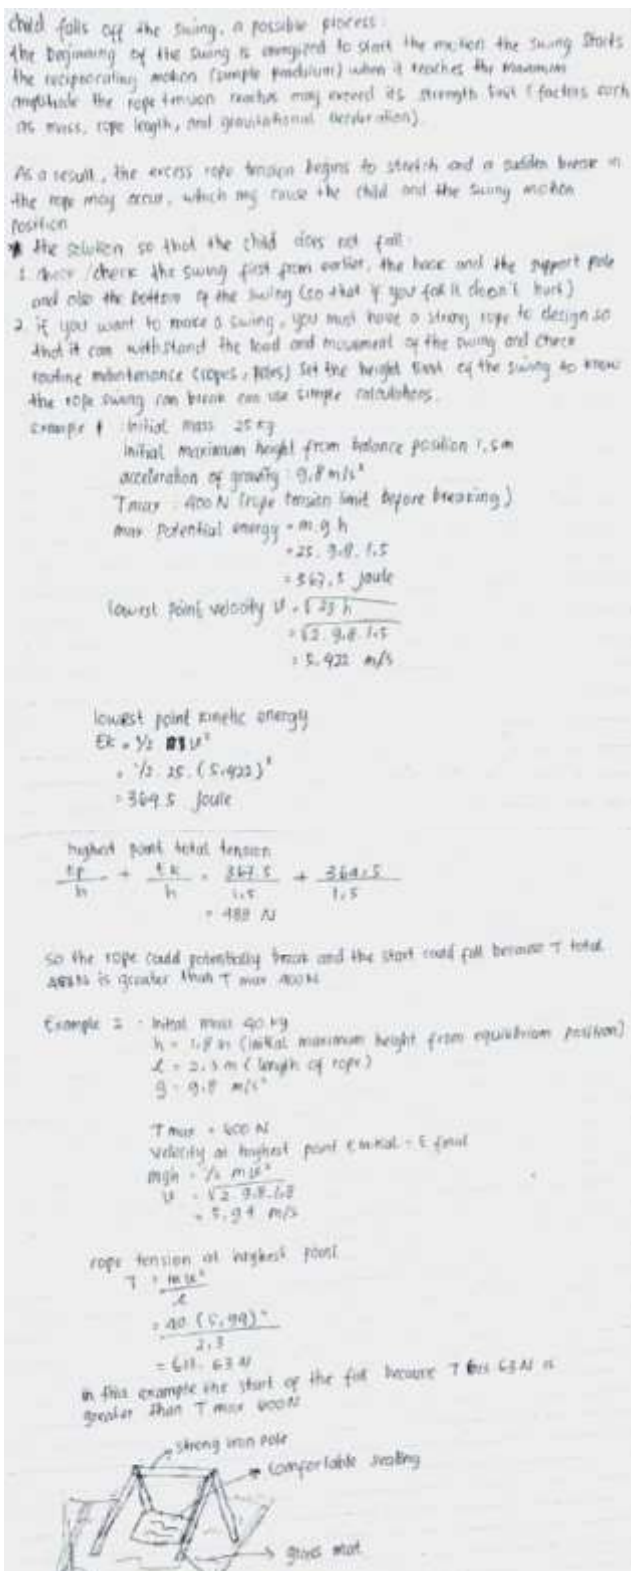 child falls off the swing, a possible process:
the beginning of the swing is energized to start the motion the swing starts
the reciprocating motion (simple pendulum) when it reaches the maximum
amplitude the rope tension reaches may exceed its strength limit (factors such
as mass, rope length, and gravitational acceleration).
As a result, the excess rope tension begins to stretch and a sudden break in
the rope may occur, which may cause the child and the swing motion
position
* the solution so that the child does not fall:
1. /check the swing first from earlier, the and the support pole
and also the bottom of the swing (so that if you fall it doesn't hurt)
2. if you want to make a swing, you must have a strong rope to design so
that it can withstand the load and movement of the swing and check
routine maintenance (ropes, poles) set the height limit of the swing to know
the rope swing can break can use simple calculations.
Example 1 : initial mass 25 kg
initial maximum height from balance position 1,5 m
acceleration of gravity : 9.8 m/s²
Tmax : 400 N (rope tension limit before breaking)
max Potential energy = m.g.h
= 25. 9.8. 1.5
= 367,5 joule
lowest point velocity v = √2g h
= √2. 9.8. 1.5
= 5.422 m/s
lowest point kinetic energy
Ek = ½ m v²
= ½. 25. (5.422)²
= 369.5 joule
highest point total tension
Ep/h + Ek/h = 367.5/1.5 + 369.5/1.5
= 488 N
so the rope could potentially break and the start could fall because T total
488 N is greater than T max 400 N
Example 2 : initial mass 40 kg
h = 1,8 m (initial maximum height from equilibrium position)
l = 2.3 m (length of rope)
g = 9.8 m/s²
T max = 600 N
velocity at highest point E initial = E final
mgh = ½ mv²
v = √2 9.8.1.8
= 5.94 m/s
rope tension at highest point
T = mv²/l
= 40 (5,94)²/2.3
= 613. 63 N
in this example the start of the fall because T 613 63 N is
greater than T max 600 N
strong iron pole
comfortable seating
grass mat